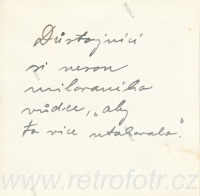 Důstojníci
si nesou
milovaného
vůdce, „aby
to více utahovalo."
www.retrofotr.cz